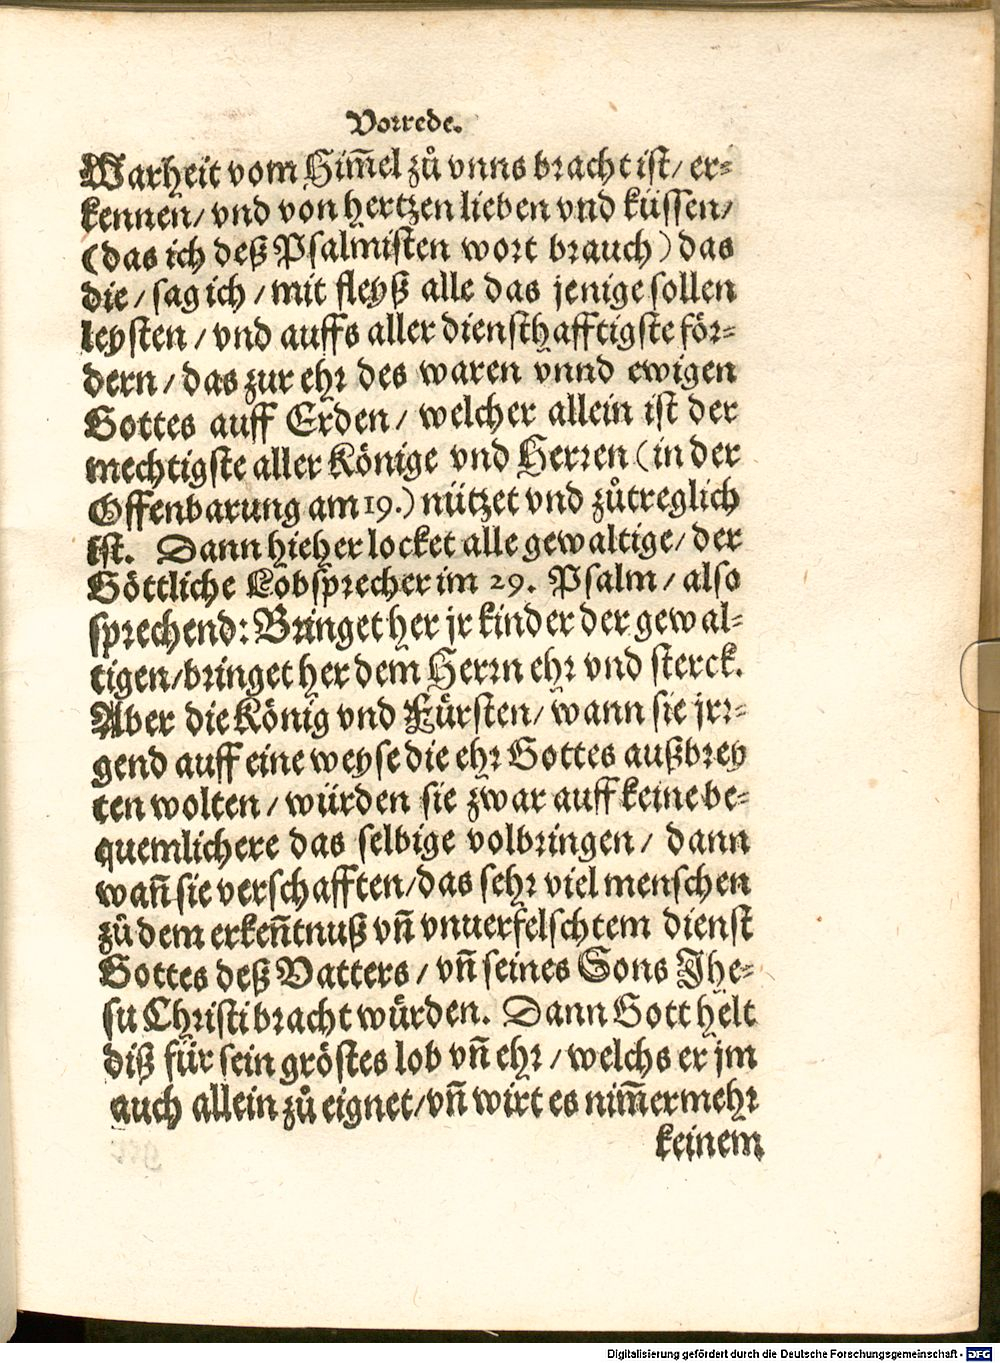 Vorrede.
Warheit vom Him̃el zů vnns bracht ist/ er-
kennen/ vnd von hertzen lieben vnd küssen/
(das ich deß Psalmisten wort brauch) das
die/ sag ich/ mit fleyß alle das jenige sollen
leysten/ vnd auffs aller diensthafftigste för-
dern/ das zur ehr des waren vnnd ewigen
Gottes auff Erden/ welcher allein ist der
mechtigste aller Könige vnd Herren (in der
Offenbarung am 19.) nützet vnd zůtreglich
ist. Dann hieher locket alle gewaltige/ der
Göttliche Lobsprecher im 29. Psalm/ also
sprechend: Bringet her jr kinder der gewal-
tigen/ bringet her dem Herrn ehr vnd sterck.
Aber die König vnd Fürsten/ wann sie jrr-
gend auff eine weyse die ehr Gottes außbrey
ten wolten/ würden sie zwar auff keine be-
quemlichere das selbige volbringen/ dann
wañ sie verschafften/ das sehr viel menschen
zů dem erkeñtnuß vñ vnuerfelschtem dienst
Gottes deß Vatters/ vñ seines Sons Jhe-
su Christi bracht würden. Dann Gott helt
diß für sein gröstes lob vñ ehr/ welchs er jm
auch allein zů eignet/ vñ wirt es nim̃ermehr
keinem
Digitalisierung gefördert durch die Deutsche Forschungsgemeinschaft - DFG